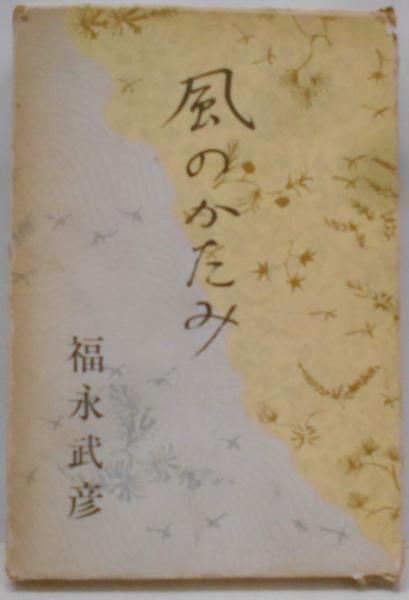 風のかたみ
福永武彦